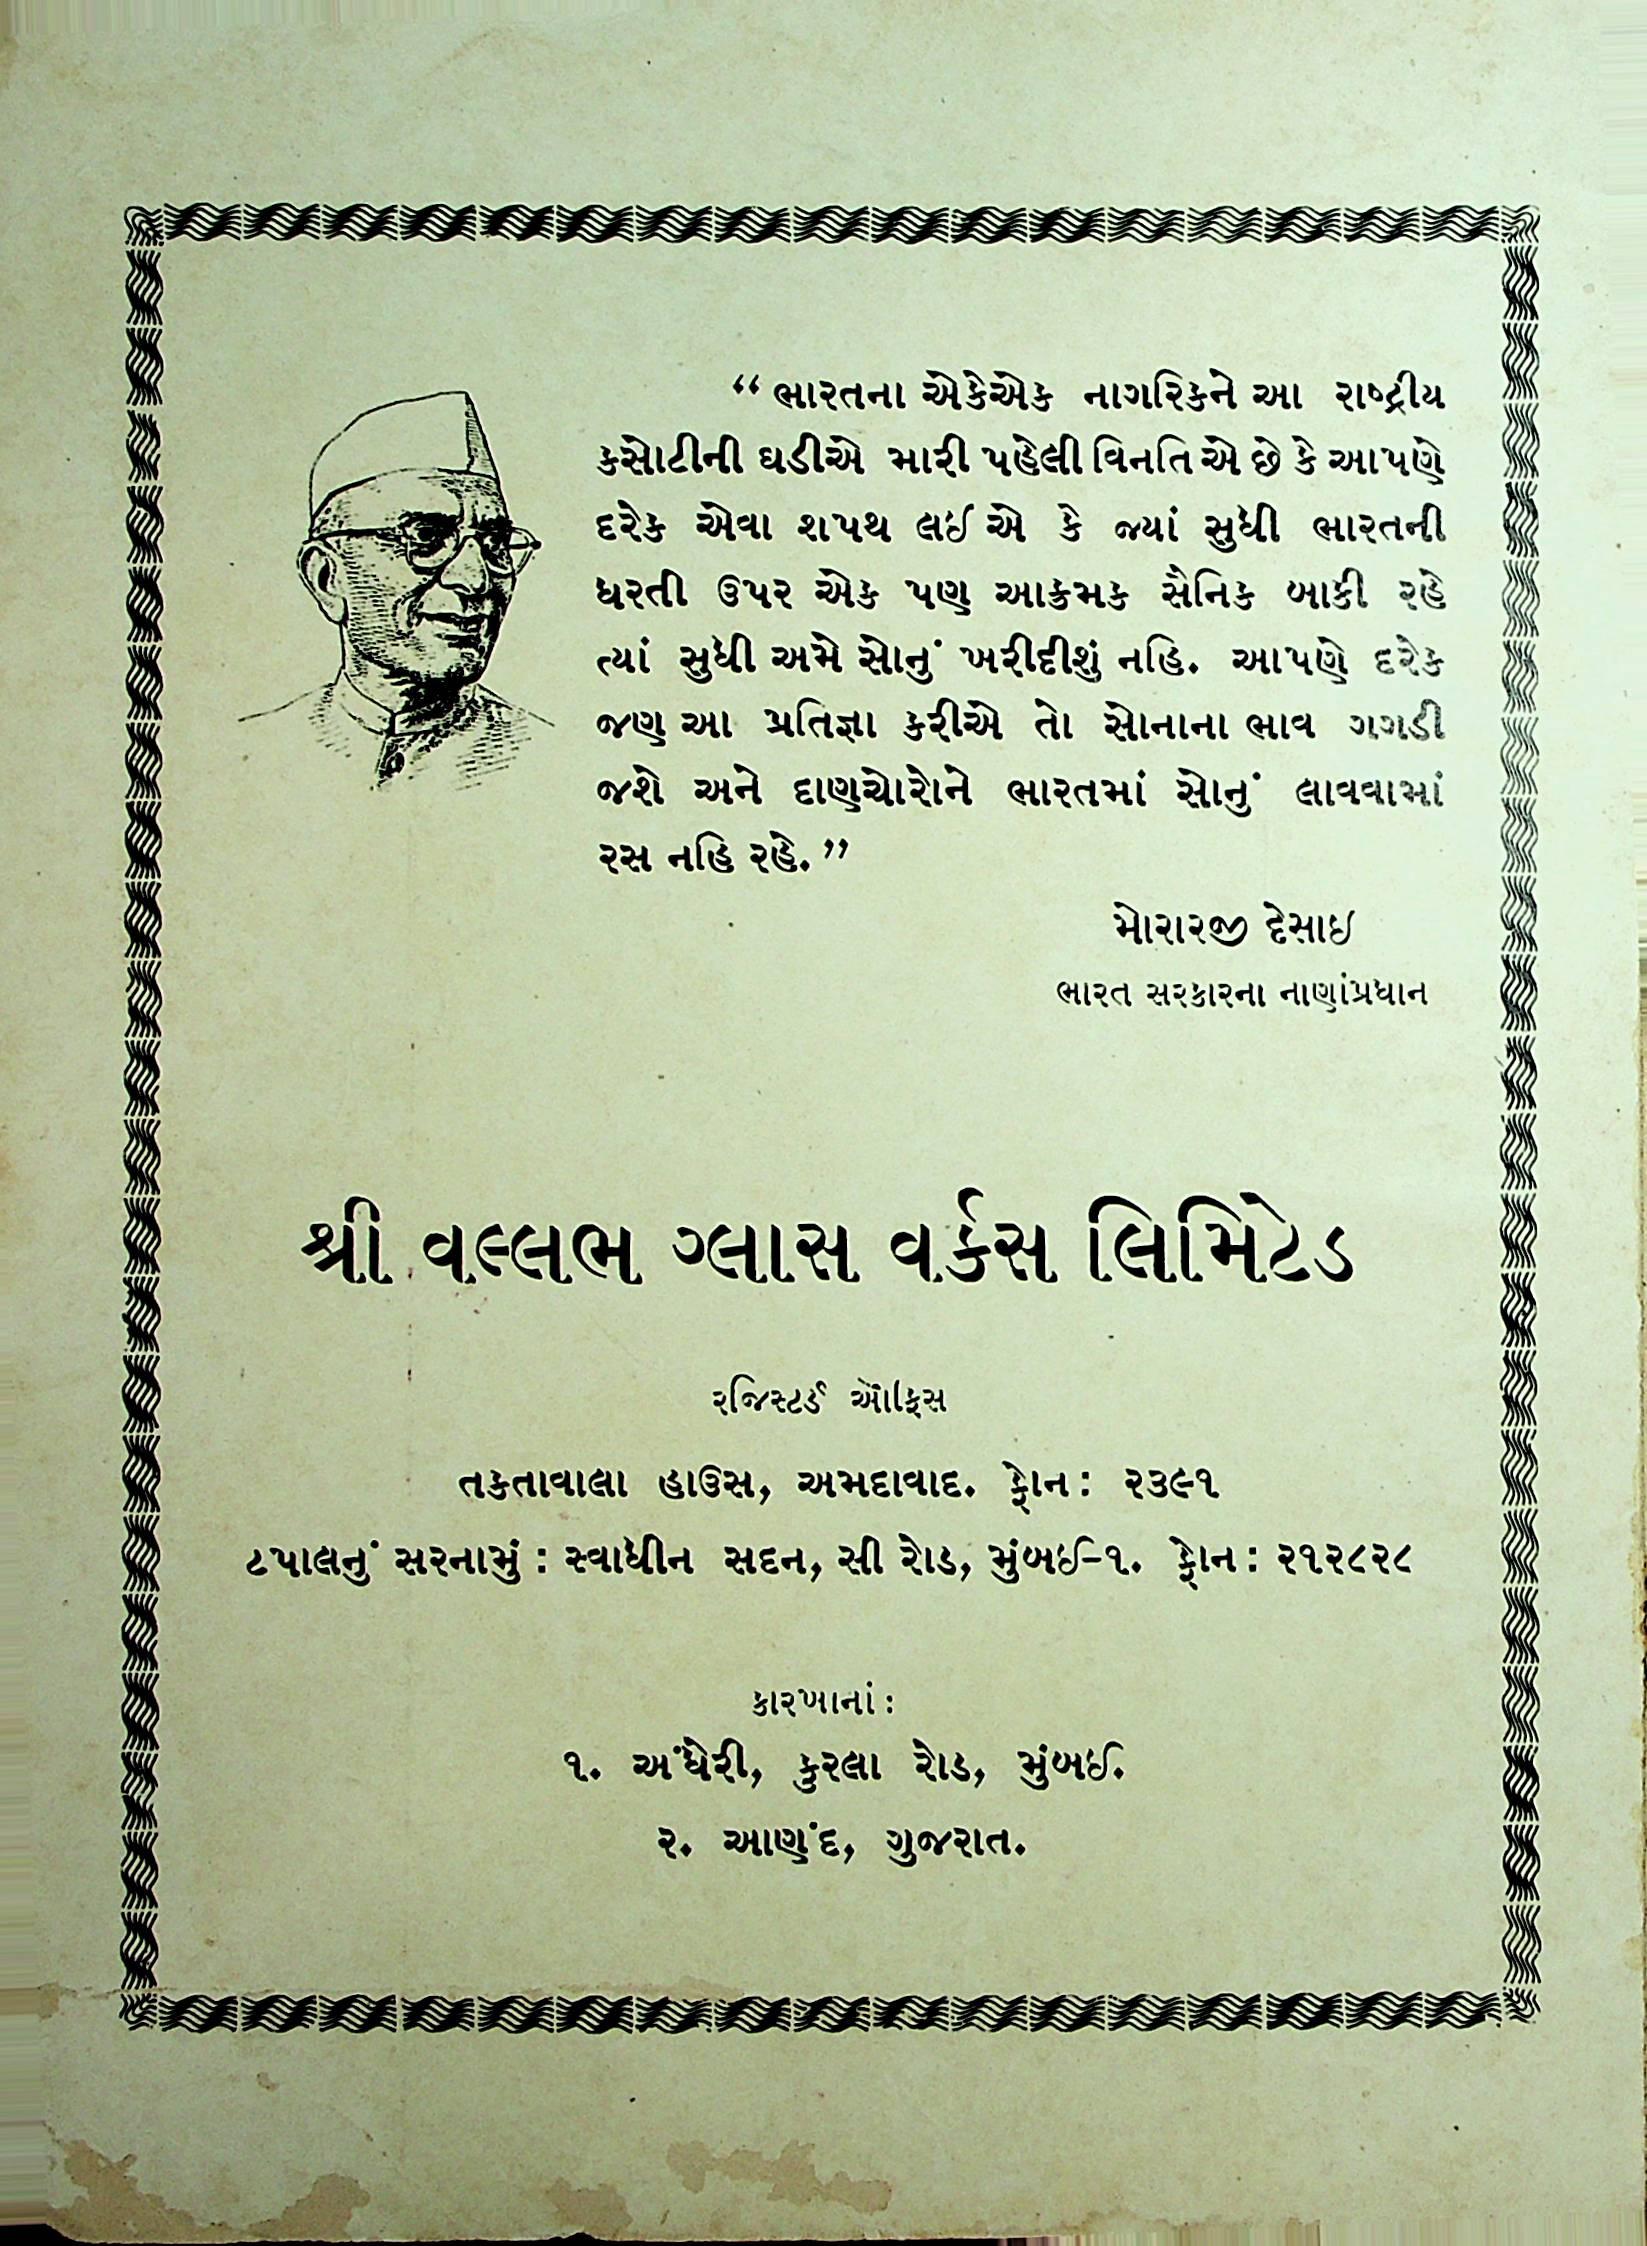 “ ભારતના એકેએક નાગરિકને આ રાષ્ટ્રીય
કસોટીની ઘડીએ મારી પહેલી વિનતિ એ છે કે આપણે
દરેક એવા શપથ લઈ એ કે જ્યાં સુધી ભારતની
ધરતી ઉપર એક પણ આક્રમક સૈનિક બાકી રહે
ત્યાં સુધી અમે સોનું ખરીદીશું નહિ. આપણે દરેક
જણ આ પ્રતિજ્ઞા કરીએ તો સોનાના ભાવ ગગડી
જશે અને દાણચોરોને ભારતમાં સોનું લાવવામાં
રસ નહિ રહે. ”
મોરારજી દેસાઇ
ભારત સરકારના નાણાંપ્રધાન
શ્રી વલ્લભ ગ્લાસ વર્કસ લિમિટેડ
રજિસ્ટર્ડ ઑફિસ
તકતાવાલા હાઉસ, અમદાવાદ. ફોન : ૨૩૯૧
ટપાલનું સરનામું : સ્વાધીન સદન, સી રોડ, મુંબઈ-૧. ફોન : ૨૧૨૮૨૮
કારખાનાં :
૧. અંધેરી, કુરલા રોડ, મુંબઈ.
૨. આણંદ, ગુજરાત.